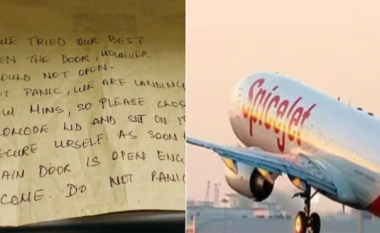 WE TRIED OUR BEST
EN THE DOOR, HOWEVER
OULD NOT OPEN.
OT PANIC, WE ARE LANDING
W MINS, SO PLEASE CLOS
OMODE LID AND SIT ON IT
ECURE URSELF. AS SOON A
AIN DOOR IS OPEN ENG
COME. DO NOT PANIC
SpiceJet